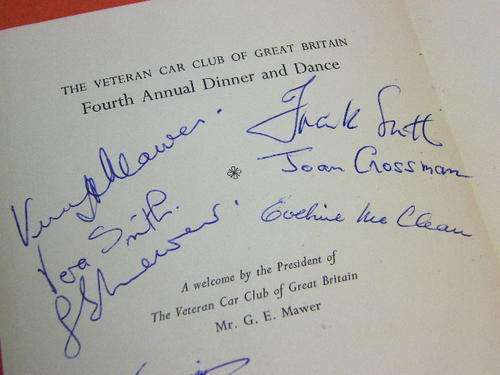 THE VETERAN CAR CLUB OF GREAT BRITAIN
Fourth Annual Dinner and Dance
Mawer.
Frank Smith
Joan Crossman
Vera Smith.
Eveline Mc Clean
A welcome by the President of
The Veteran Car Club of Great Britain
Mr. G. E. Mawer